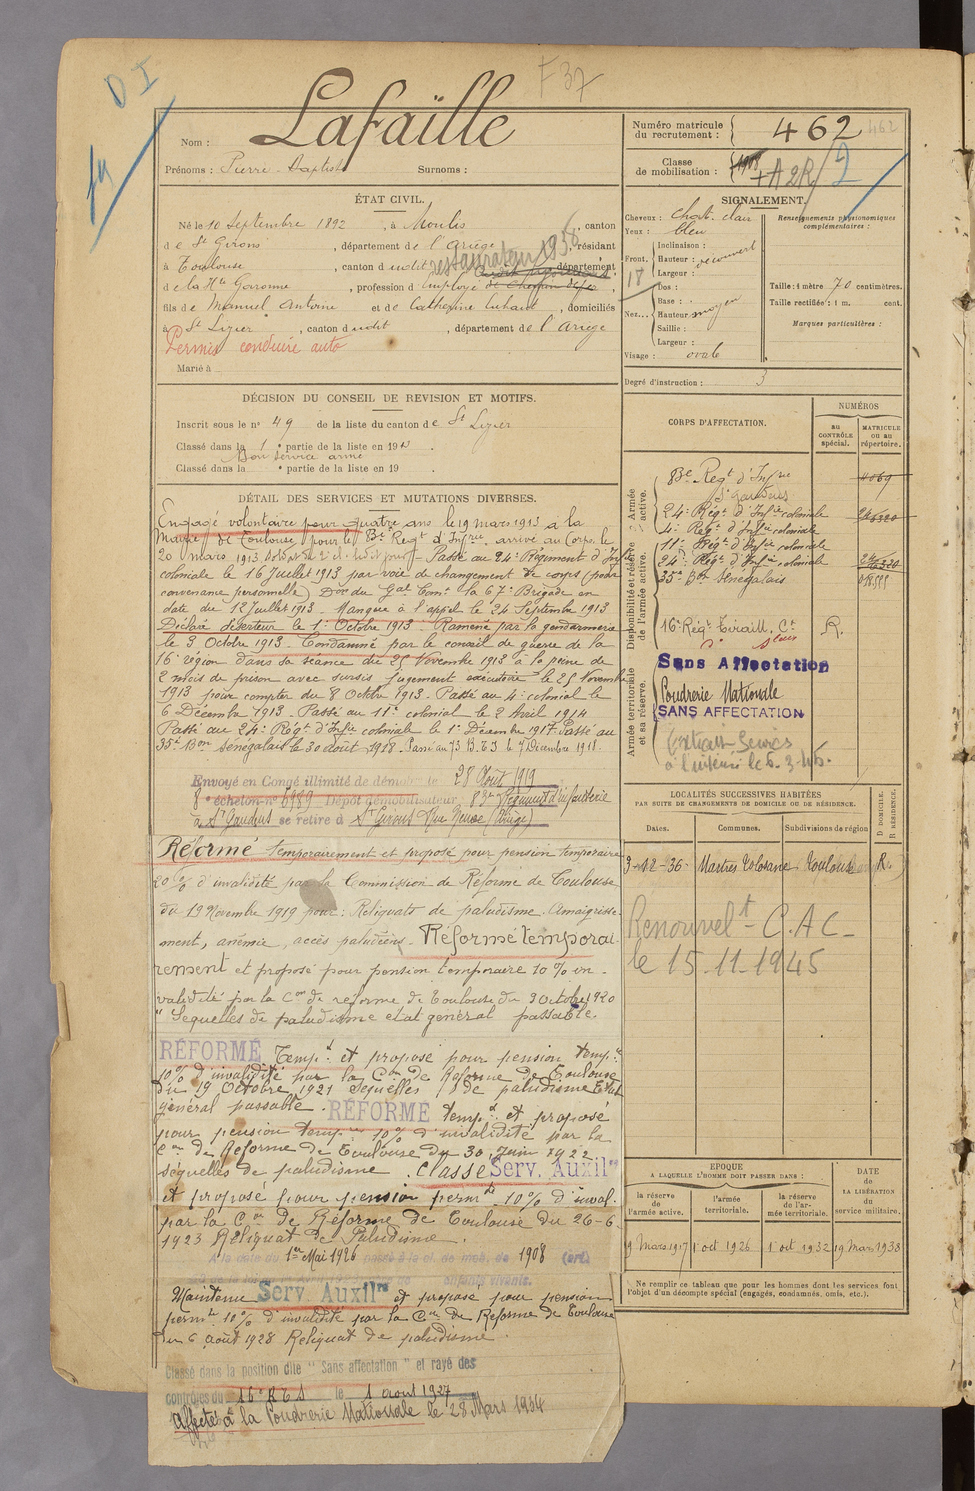 D I
F 37
Nom : Lafaille
Prénoms : Pierre Baptiste Surnoms :
Numéro matricule du recrutement : 462
462
Classe de mobilisation : 1908 + A 2R/2
ÉTAT CIVIL.
Né le 10 Septembre 1892, à Moulis, canton
de St Girons, département de l'Ariège, résidant
à Toulouse, canton dudit, département
restaurateur 1938
de la Hte Garonne, profession d'Employé de Chemin de fer
fils de Manuel Antoine et de Catherine, domiciliés
à St Lizier, canton dudit, département de l'Ariège
Permis conduire auto
Marié à
SIGNALEMENT.
Cheveux : chat. clair
Yeux : bleu
Front. Inclinaison :
Hauteur : découvert
Largeur :
17
Nez... Dos :
Base :
Hauteur moyen
Saillie :
Largeur :
Visage : ovale
Renseignements physionomiques complémentaires :
Taille : 1 mètre 70 centimètres.
Taille rectifiée : 1 m. cent.
Marques particulières :
Degré d'instruction : 3
DÉCISION DU CONSEIL DE REVISION ET MOTIFS.
Inscrit sous le n° 49 de la liste du canton de St Lizier
Classé dans la 1e partie de la liste en 191
Bon service armé
Classé dans la e partie de la liste en 19 .
DÉTAIL DES SERVICES ET MUTATIONS DIVERSES.
Engagé volontaire pour quatre ans le 19 mars 1913 à la
Mairie de Toulouse pour le 83e Regt d'Infrie, arrivé au Corps le
20 mars 1913, soldat de 2e cl. dudit jour. Passé au 24e Régiment d'Infie
coloniale le 16 Juillet 1913 par voie de changement de corps (pour
convenance personnelle) Don du Gal Comt la 67e Brigade en
date du 12 Juillet 1913. Manque à l'appel le 24 Septembre 1913
Déclaré déserteur le 1er Octobre 1913. Ramené par la gendarmerie
le 3 Octobre 1913. Condamné par le conseil de guerre de la
16e région dans sa séance du 25 Novembre 1913 à la peine de
2 mois de prison avec sursis jugement exécutoire le 25 Novembre
1913 pour compter du 8 Octbre 1913. Passé au 4e colonial le
6 Décembre 1913. Passé au 11e colonial le 2 Avril 1914
Passé au 24e Régt d'Infie coloniale le 1er Décembre 1917. Passé au
35e Bon Sénégalais le 30 août 1918. Passé au 73 B.T.S le 7 Décembre 1918.
Envoyé en Congé illimité de démob le 28 Août 1919
8e échelon n° 6989 Dépôt démobilisateur 83e Régiment d'infanterie
à St Gaudens se retire à St Girons Rue Neuve (Ariège)
Réformé temporairement et proposé pour pension temporaire
20 % d'invalidité par la Commission de Réforme de Toulouse
du 19 Novembre 1919 pour : Reliquats de paludisme. Amaigrisse-
ment, anémie, accès paludéens. Réformé temporai-
rement et proposé pour pension temporaire 10 % in-
validité par la Con de réforme de Toulouse du 30 Octobre 1920
" Sequelles de paludisme etat général passable.
RÉFORMÉ Tempt et proposé pour pension tempre
10 % d'invalidité par la Con de Réforme de Toulouse
du 19 Octobre 1921 Sequelles de paludisme Etat
général passable. RÉFORMÉ tempt et proposé
pour pension tempre 10 % d'invalidité par la
Con de Réforme de Toulouse du 30 Juin 1922
séquelles de paludisme. Classé Serv. Auxilre
et proposé pour pension permte 10 % d'inval.
par la Con de Réforme de Toulouse du 26-6
1923 Reliquat de Paludisme.
A la date du 1er Mai 1926 passé à la cl. de mob. de 1908 (art.
enfants vivants.
Maintenu Serv. Auxilre et proposé pour pension
permte 10 % d'invalidité par la Con de Réforme de Toulouse
du 6 août 1928 Reliquat de paludisme.
Classé dans la position dite "Sans affectation" et rayé des
contrôles du 16e RTS le 1 août 1927
Affecté à la Poudrerie Nationale le 28 Mars 1934
CORPS D'AFFECTATION.
NUMÉROS
au CONTRÔLE spécial.
MATRICULE ou au répertoire.
Armée active.
83e Regt d'Infrie 4069
St Gaudens
24e Régt d'Infie coloniale
4e Regt d'Infie coloniale
11e Régt d'Infie coloniale
Disponibilité et réserve de l'armée active.
24e Régt d'Infie coloniale
35e Bon Sénégalais
16e Régt Tiraill. R.
Armée territoriale et sa réserve.
Sans Affectation
Poudrerie Nationale
SANS AFFECTATION
le 6.3.46.
LOCALITÉS SUCCESSIVES HABITÉES
PAR SUITE DE CHANGEMENTS DE DOMICILE OU DE RÉSIDENCE.
D DOMICILE. R RÉSIDENCE.
Dates. Communes. Subdivisions de région
3-12-36 Martres Tolosane Toulouse R.
Renouvelt - C.A.C -
le 15.11.1945
EPOQUE
A LAQUELLE L'HOMME DOIT PASSER DANS :
DATE DE LA LIBÉRATION du service militaire.
la réserve de l'armée active.
l'armée territoriale.
la réserve de l'armée territoriale.
19 Mars 1917 1er oct 1926 1er oct 1932 19 Mars 1938
Ne remplir ce tableau que pour les hommes dont les services font
l'objet d'un décompte spécial (engagés, condamnés, omis, etc.).